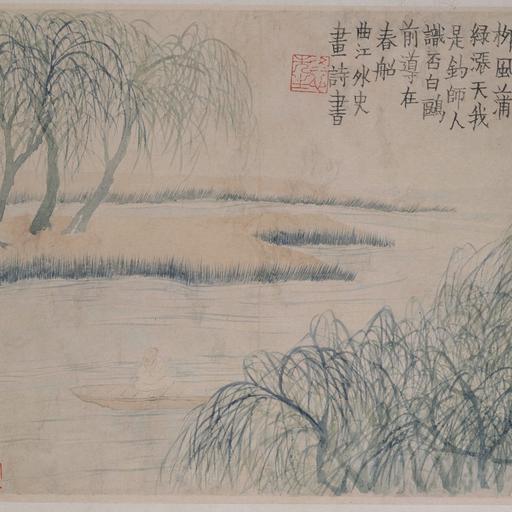 柳風蒲
綠漲天我
是釣師人
識否白鷗
前導在
春船
曲江外史
畫詩書